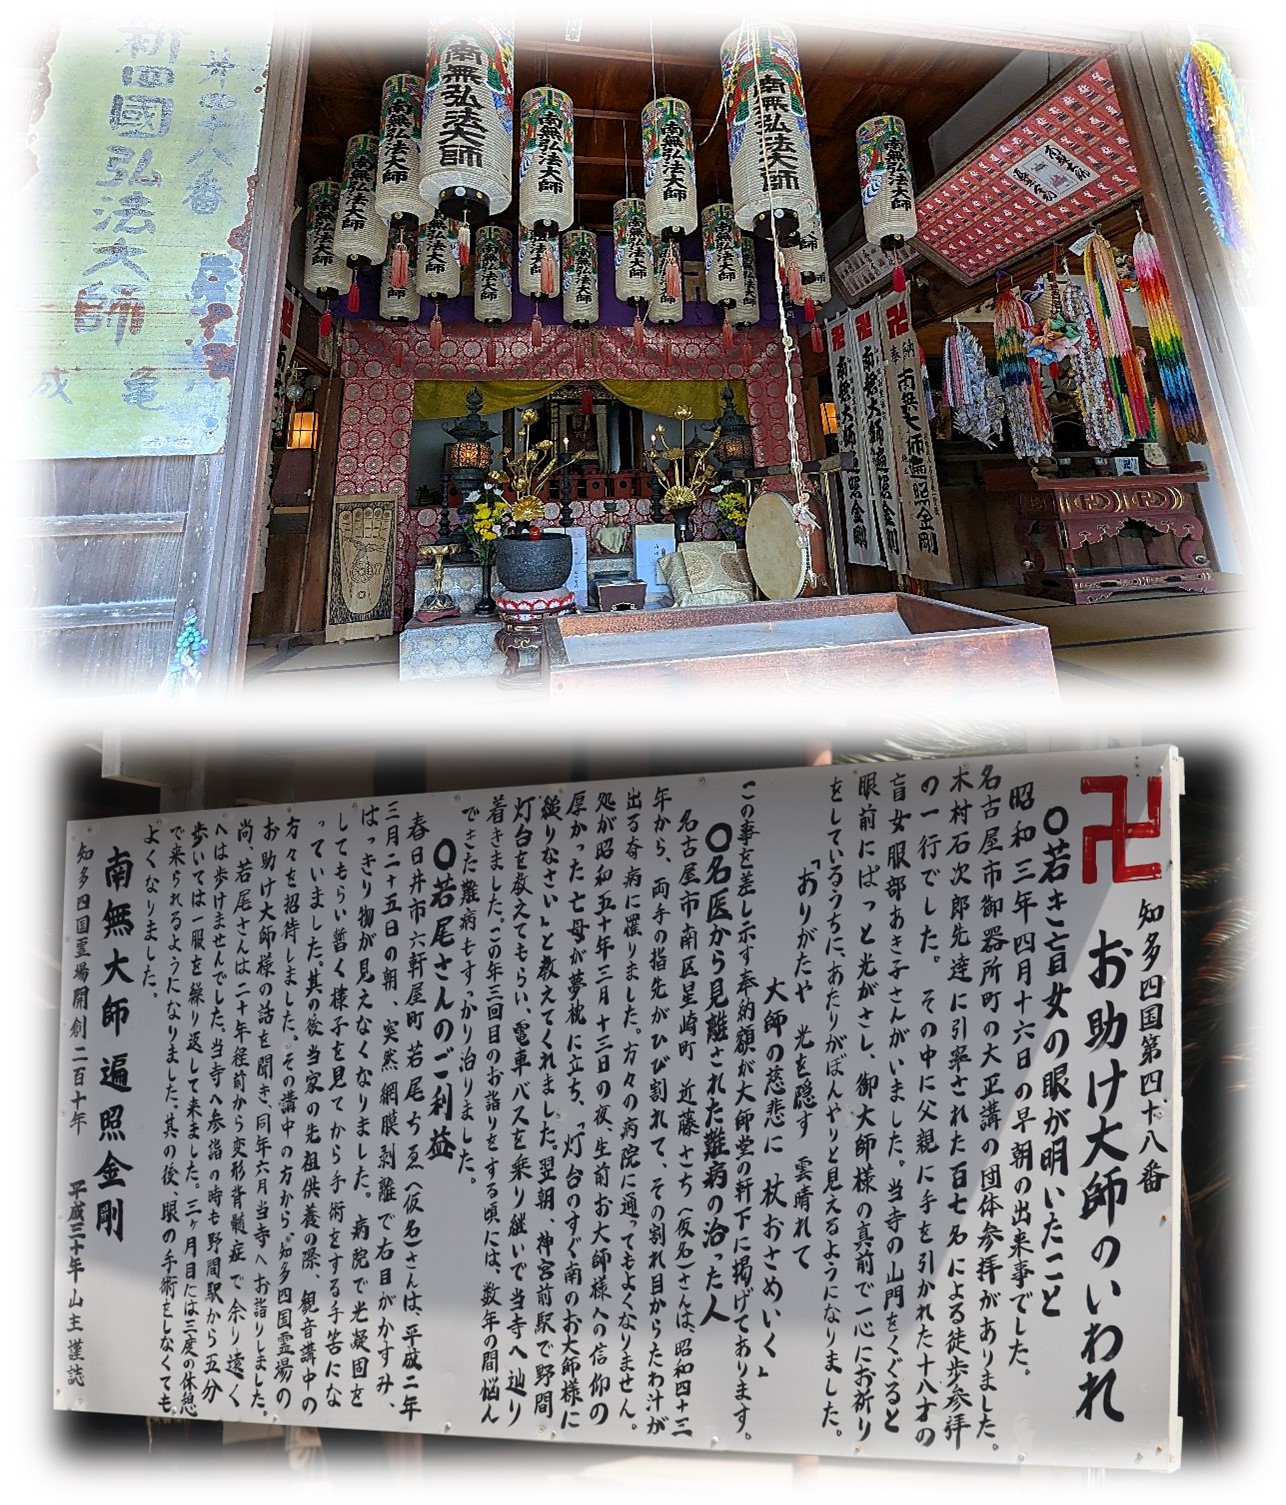 第四十八番
新四國弘法大師
南無弘法大師
南無弘法大師
南無弘法大師
南無弘法大師
南無弘法大師
南無弘法大師
南無弘法大師
南無弘法大師
奉納 南無大師遍照金剛
卍
知多四国第四十八番
お助け大師のいわれ
〇若き盲女の眼が明いたこと
昭和三年四月十六日の早朝の出来事でした。
名古屋市御器所町の大正講の団体参拝がありました。
木村石次郎先達に引率された百七名による徒歩参拝
の一行でした。その中に父親に手を引かれた十八才の
盲女服部あき子さんがいました。当寺の山門をくぐると
眼前にぱっと光がさし、御大師様の真前で一心にお祈り
をしているうちに、あたりがぼんやりと見えるようになりました。
「ありがたや 光を隠す 雲晴れて
大師の慈悲に 杖おさめいく」
この事を差し示す奉納額が大師堂の軒下に掲げてあります。
〇名医から見離された難病の治った人
名古屋市南区星崎町 近藤さち(仮名)さんは、昭和四十三
年から、両手の指先がひび割れて、その割れ目からたわ汁が
出る奇病に罹りました。方々の病院に通ってもよくなりません。
処が昭和五十年三月十三日の夜、生前お大師様への信仰の
厚かった七母が夢枕に立ち、「灯台のすぐ南のお大師様に
縋りなさい」と教えてくれました。翌朝、神宮前駅で野間
灯台を教えてもらい、電車バスを乗り継いで当寺へ辿り
着きました。この年三回目のお詣りをする頃には、数年の間悩ん
できた難病もすっかり治りました。
〇若尾さんのご利益
春日井市六軒屋町 若尾ちゑ(仮名)さんは、平成二年
三月二十五日の朝、突然網膜剥離で右目がかすみ、
はっきり物が見えなくなりました。病院で光凝固を
してもらい暫く様子を見てから手術をする手筈にな
っていました。其の後当家の先祖供養の際、観音講中の
方々を招待しました。その講中の方から、知多四国霊場の
お助け大師様の話を聞き、同年六月当寺へお詣りしました。
尚、若尾さんは二十年程前から変形脊髄症で余り遠く
へは歩けませんでした。当寺へ参詣の時も野間駅から五分
歩いては一服を繰り返して来ました。三ヶ月目には三度の休憩
で来られるようになりました、其の後、眼の手術をしなくても
よくなりました。
南無大師遍照金剛
知多四国霊場開創二百十年 平成三十年 山主謹誌